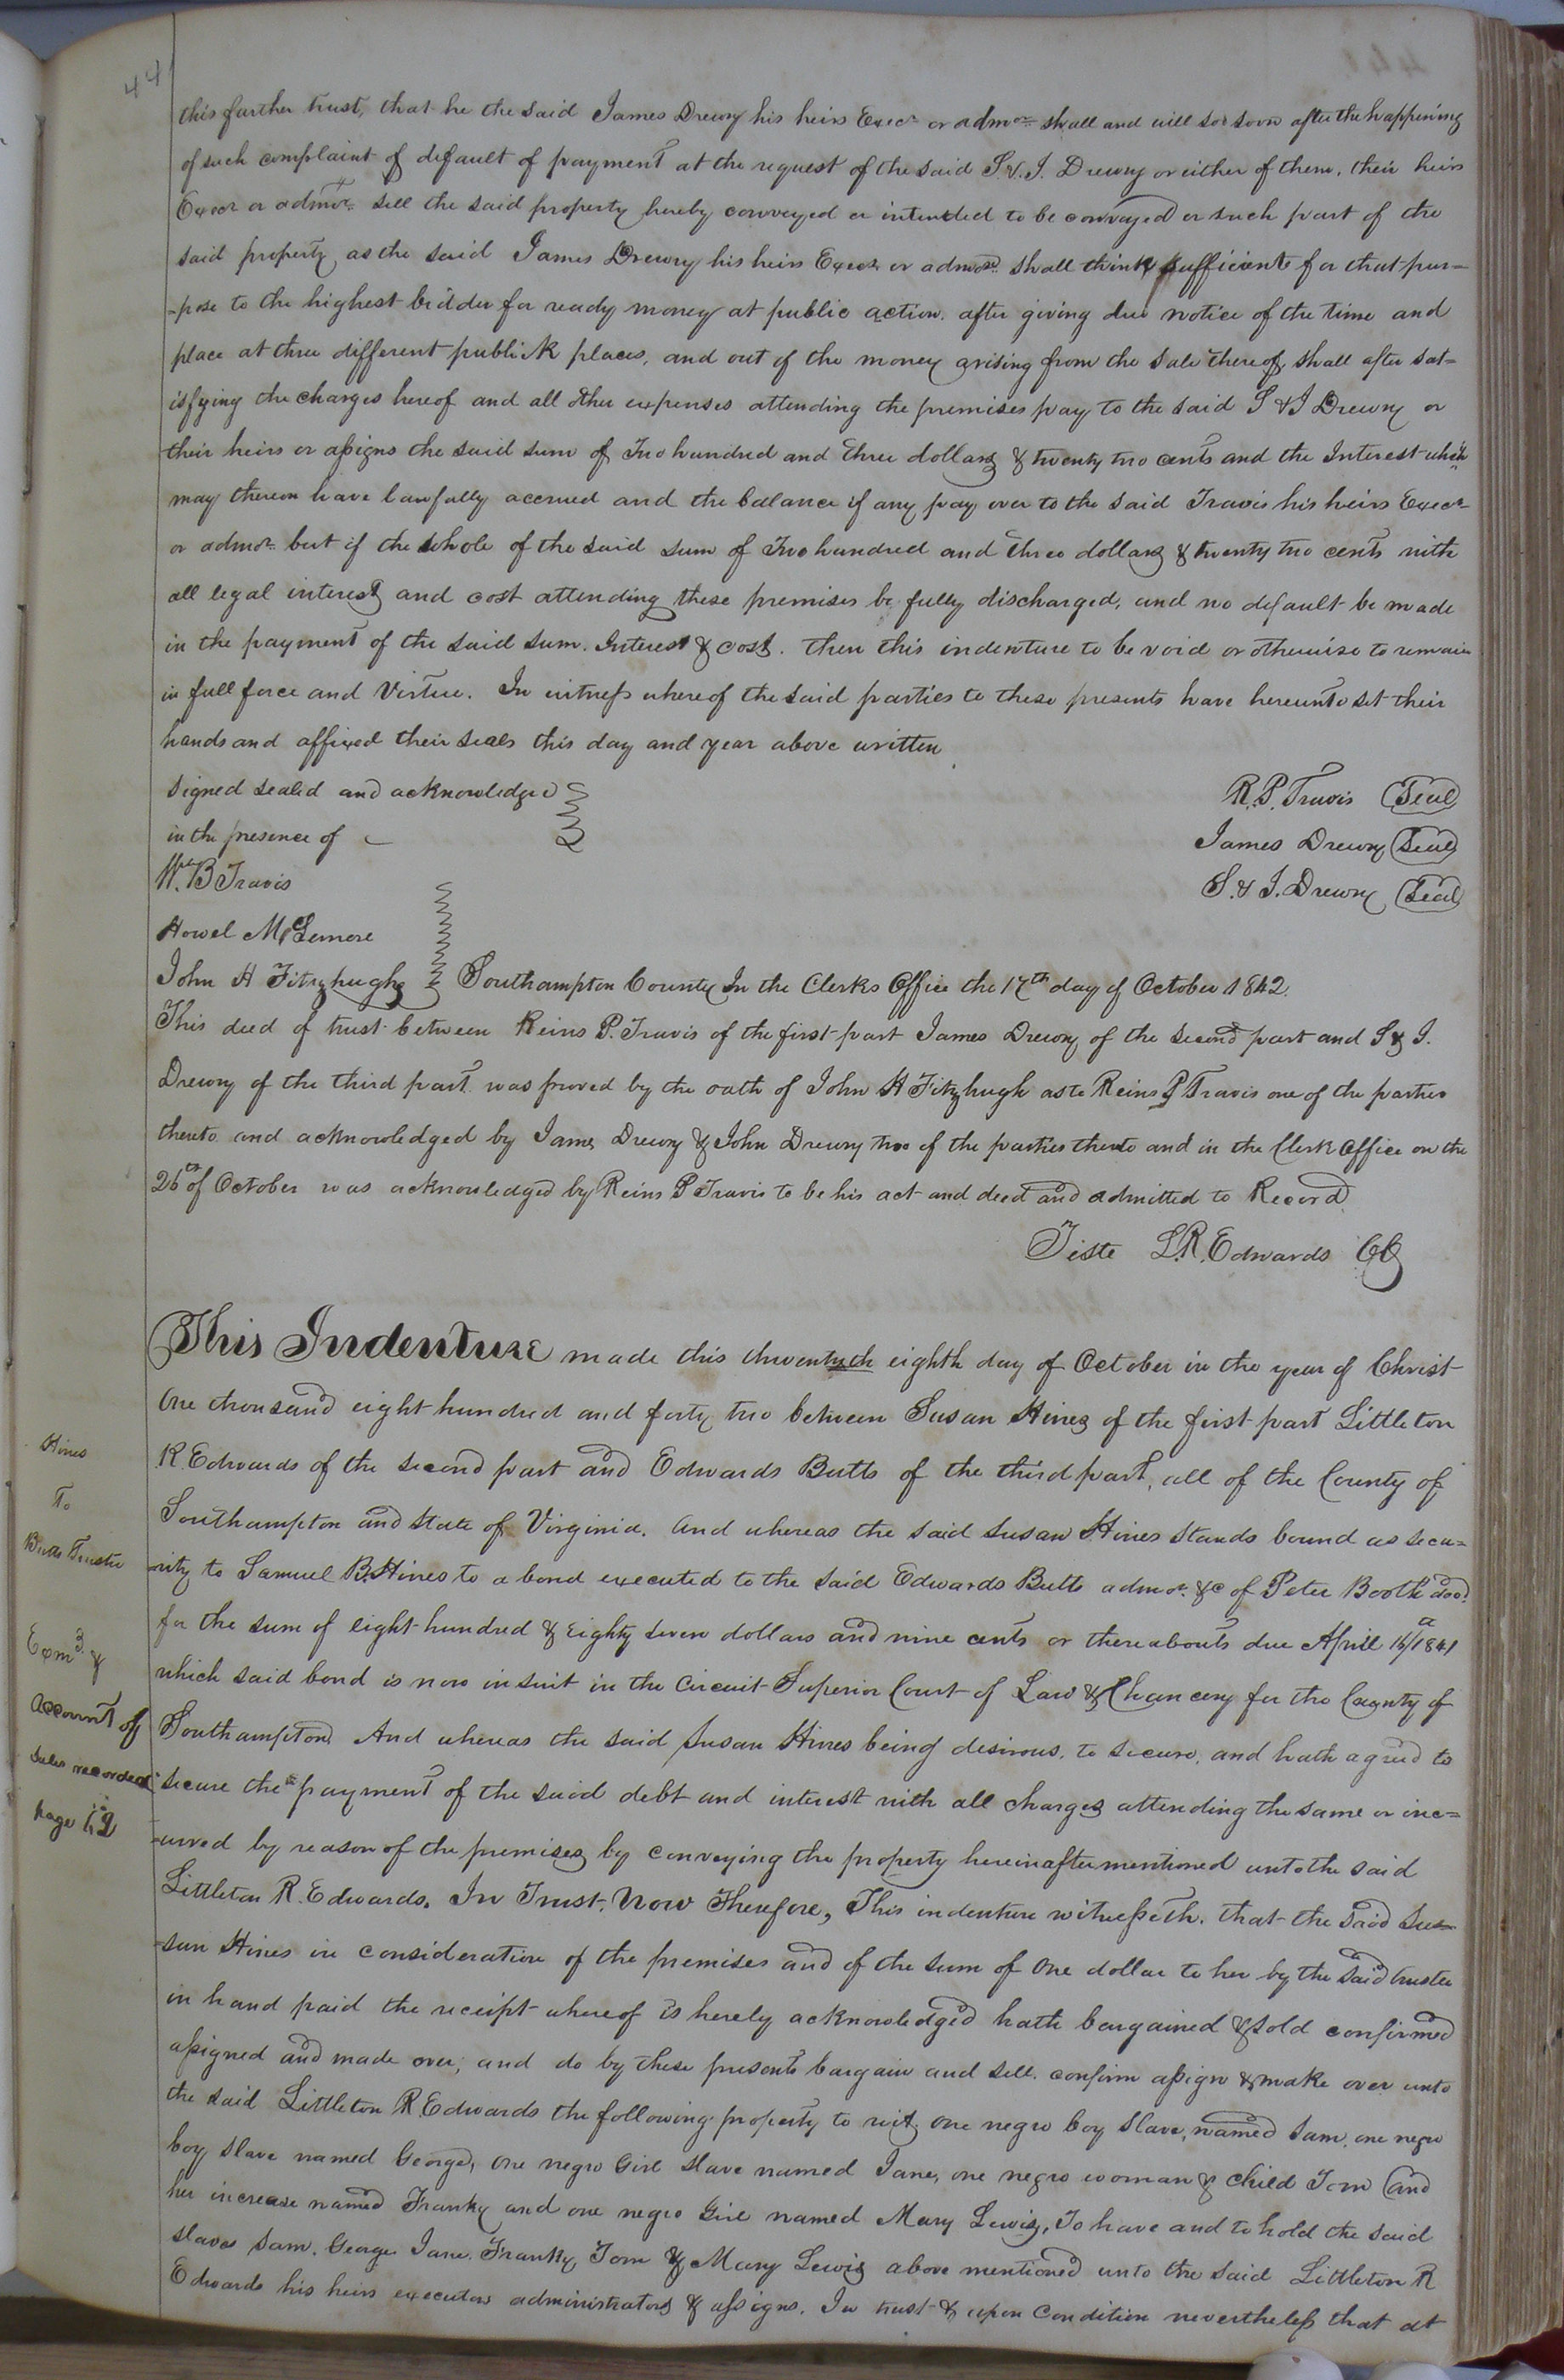 441
this further trust, that he the said James Drewry his heirs Execr or admor shall and will so soon after the happening
of such complaint of default of payment at the request of the said S & J. Drewry or either of them, their heirs
Execr or admor sell the said property hereby conveyed or intended to be conveyed or such part of the
said property as the said James Drewry his heirs Execr or admor shall think sufficient for that pur=
=pose to the highest bidder for ready money at public action. after giving due notice of the time and
place at three different publick places, and out of the money arising from the sale thereof, shall after sat=
isfying the charges hereof and all other expenses attending the premises pay to the said S & J Drewry or
their heirs or assigns the said sum of Two hundred and three dollars & twenty two cents and the Interest which
may thereon have lawfully accrued and the balance if any pay over to the said Travis his heirs Execr
or admor but if the whole of the said sum of Two hundred and three dollars & twenty two cents with
all legal interest and cost attending these premises be fully discharged, and no default be made
in the payment of the said sum. Interest & cost. then this indenture to be void or otherwise to remain
in full force and Virtue. In witness whereof the said parties to these presents have hereunto set their
hands and affixed their seals this day and year above written
signed sealed and acknowledged R. P. Travis Seal
in the presence of James Drewry Seal
Wm. B Travis S. & J. Drewry Seal
Howel McLemore
John H Fitzhugh Southampton County In the Clerks Office the 17th day of October 1842.
This deed of trust between Reins P. Travis of the first part James Drewry of the second part and S & J.
Drewry of the third part was proved by the oath of John H Fitzhugh as to Reins P Travis one of the parties
thereto and acknowledged by James Drewry & John Drewry two of the parties thereto and in the Clerk Office on the
26th of October was acknowledged by Reins P Travis to be his act and deed and admitted to Record
Teste L. R. Edwards CC
This Indenture made this twenty eighth day of October in the year of Christ
One thousand eight hundred and forty two between Susan Hines of the first part Littleton
R Edwards of the second part and Edwards Butts of the third part, all of the County of
Southampton and State of Virginia. And whereas the said Susan Hines stands bound as secu=
=rity to Samuel B. Hines to a bond executed to the said Edwards Butts admor. &c of Peter Booth decd
for the sum of eight hundred & Eighty seven dollars and nine cents or thereabouts due Aprill 16th 1841
which said bond is now in suit in the Circuit Superior Court of Law & Chancery for the County of
Southampton And whereas the said Susan Hines being desirous, to secure, and hath agreed to
secure the payment of the said debt and interest with all charges attending the same or inc=
=urred by reason of the premises by conveying the property hereinafter mentioned unto the said
Littleton R. Edwards. In Trust. Now Therefore, This indenture witnesseth. that the said Su=
=san Hines in consideration of the premises and of the sum of One dollar to her by the said trustee
in hand paid the receipt whereof is hereby acknowledged hath bargained & sold confirmed
assigned and made over, and do by these presents bargain and sell. confirm assign & make over unto
the said Littleton R. Edwards the following property to wit, one negro boy slave, named Sam. one negro
boy slave named George, one negro Girl slave named Jane, one negro woman & child Tom (and
her increase named Franky and one negro Girl named Mary Lewis, To have and to hold the said
slaves Sam. George. Jane. Franky, Tom & Mary Lewis above mentioned unto the said Littleton R
Edwards his heirs executors administrators & assigns. In trust & upon Condition nevertheless that at
Hines
To
Butts Trustee
Exmd &
account of
Sales recorded
page 12